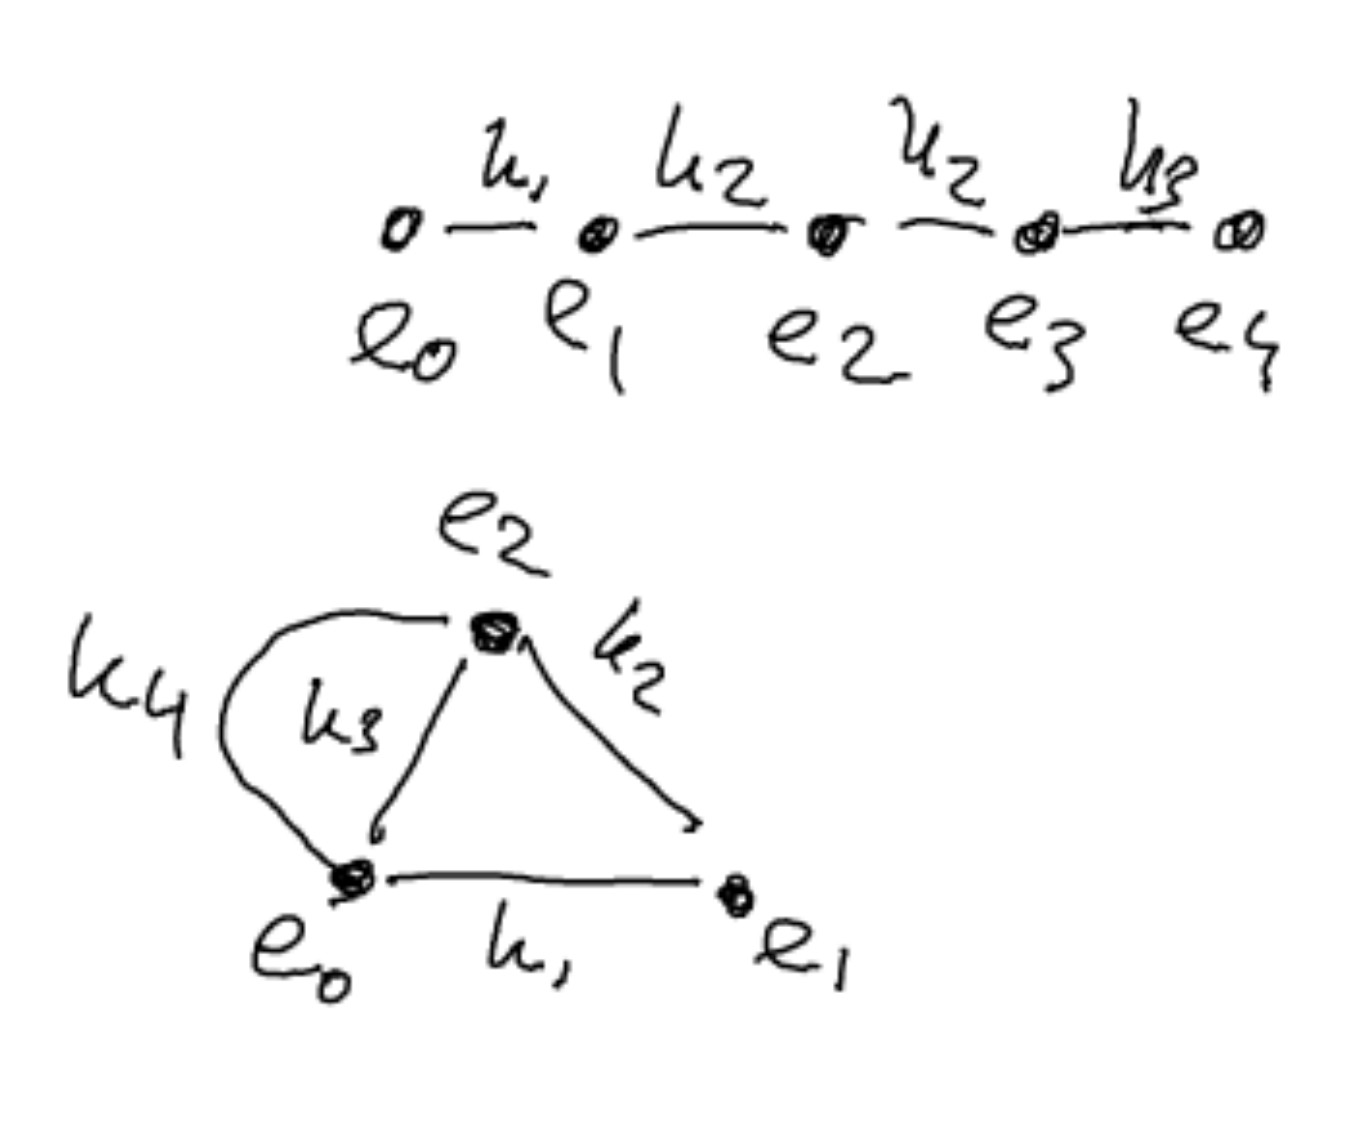 k1 k2 k2 k3
e0 e1 e2 e3 e4
e2
k4 k3 k2
e0 k1 e1